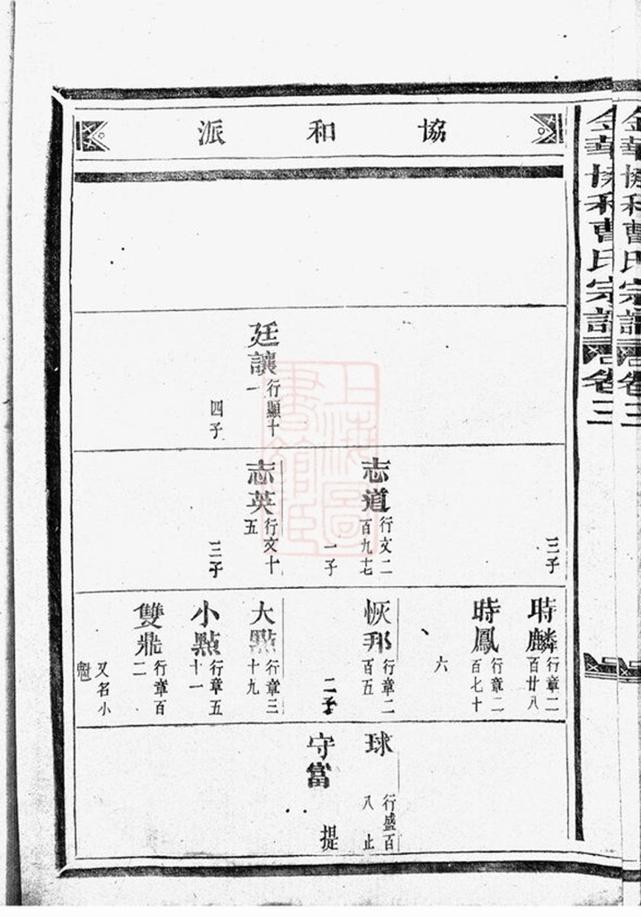 金華協和曹氏宗譜 卷三
金華協和曹氏宗譜 卷三
協和派
廷讓 行顯十一
四子
三子
志道 行文二百九七
一子
志英 行文十五
三子
時麟 行章二百廿八
時鳳 行章二百七十
六
恢邦 行章二百五
二子
大點 行章三十九
小點 行章五十一
雙鼎 行章百二
又名小魁
球 行盛百八 止
守當
提
上海圖書館藏